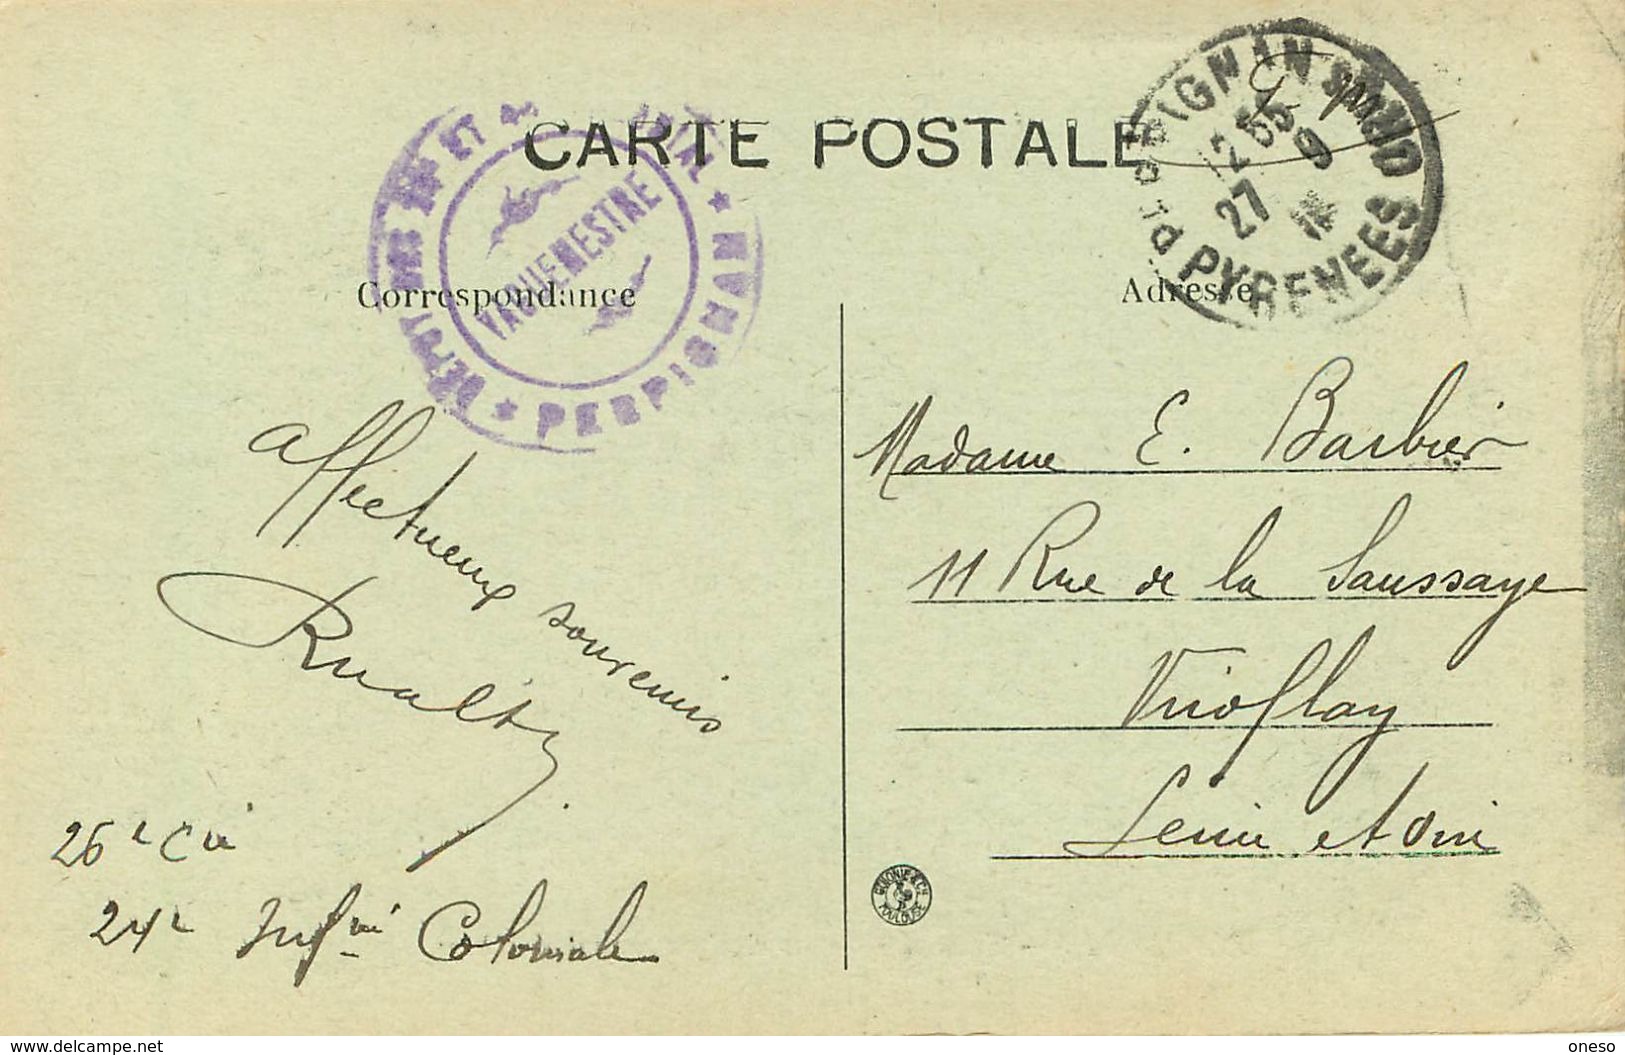 CARTE POSTALE
DÉPÔT DES ET COLONIAL ★ PERPIGNAN ★
VAGUEMESTRE
PERPIGNAN
12 55
27 9
PYRENEES
Correspondance
Adresse
Affectueux souvenirs
26e Cie
24e Infie Coloniale
Madame E. Barbier
11 Rue de la Saussaye
Viroflay
Seine et Oise
TOULOUSE
www.delcampe.net
oneso